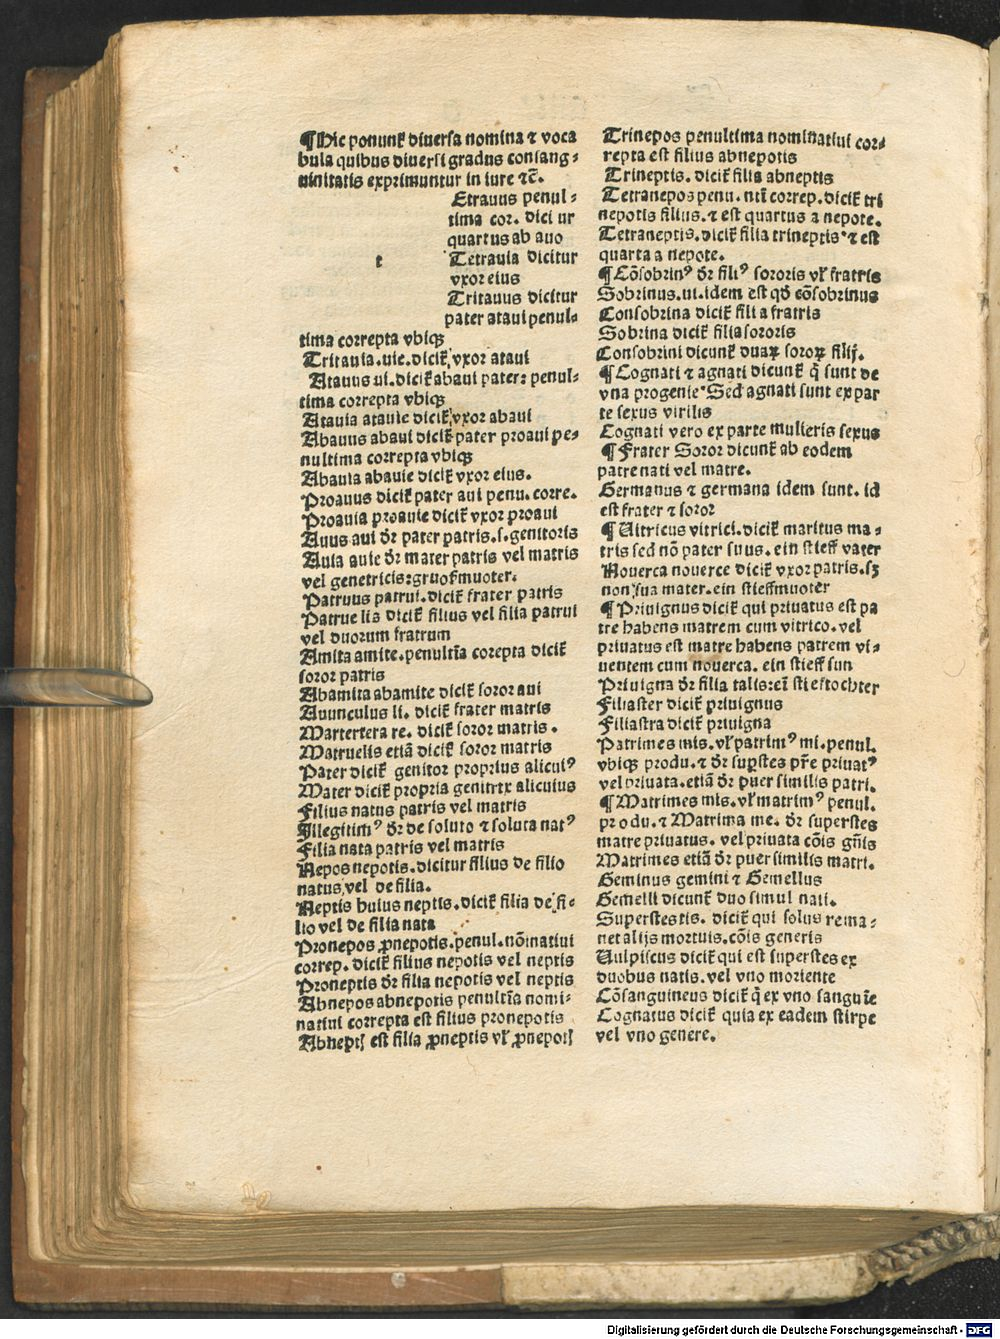 ¶Hic ponunt̉ diuersa nomina ⁊ voca
bula quibus diuersi gradus consang⸗
uinitatis exprimuntur in iure ⁊c̄.
Etrauus penul⸗
tima cor. dici ur
quartus ab auo
t
Tetrauia dicitur
vxor eius
Tritauus dicitur
pater ataui penul⸗
tima correpta vbiqꝫ
Tritauia.uie.dicit̉ vxor ataui
Atauus ui.dicit̉ abaui pater: penul⸗
tima correpta vbiqꝫ
Atauia atauie dicit̉ vxor abaui
Abauus abaui dicit̉ pater proaui pe⸗
nultima correpta vbiqꝫ
Abauia abauie dicit̉ vxor eius.
Proauus dicit̉ pater aui penu. corre.
Proauia proauie dicit̉ vxor proaui
Auus aui dr̄ pater patris.s.genitoris
Auia auie dr̄ mater patris vel matris
vel genetricis:grosmuoter.
Patruus patrui.dicit̉ frater patris
Patrue lis dicit̉ filius vel filia patrui
vel duorum fratrum
Amita amite.penultīa corepta dicit̉
soror patris
Abamita abamite dicit̉ soror aui
Auunculus li. dicit̉ frater matris
Martertera re. dicit̉ soror matris.
Matruelis etiā dicit̉ soror matris
Pater dicit̉ genitor proprius alicuiꝰ
Mater dicit̉ propria genitrix alicuius
Filius natus patris vel matris
Illegitimꝰ dr̄ de soluto ⁊ soluta natꝰ
Filia nata patris vel matris
Nepos nepotis.dicitur filius de filio
natus vel de filia.
Neptis huius neptis.dicit̉ filia de fi⸗
lio vel de filia nata
Pronepos ꝓnepotis.penul.nōinatiui
correp. dicit̉ filius nepotis vel neptis
Proneptis dr̄ filia nepotis vel neptis
Abnepos abnepotis penultīa nomi⸗
natiui correpta est filius pronepotis
Abneptꝭ est filia ꝓneptis vł ꝓnepotꝭ
Trinepos penultima nominatiui cor⸗
repta est filius abnepotis
Trineptis.dicit̉ filia abneptis
Tetranepos penu.ntī correp.dicit̉ tri
nepotis filius.⁊ est quartus a nepote.
Tetraneptis.dicit̉ filia trineptis ⁊ est
quarta a nepote.
¶Cōsobrinꝰ dr̄ filiꝰ sororis vł fratris
Sobrinus.ui.idem est qd̄ cōsobrinus
Consobrina dicit̉ filia fratris
Sobrina dicit̉ filia sororis
Consobrini dicunt̉ duaꝝ soroꝝ filij.
¶Cognati ⁊ agnati dicunt̉ q̄ sunt de
vna progenie Sed agnati sunt ex par
te sexus virilis
Cognati vero ex parte mulieris sexus
¶Frater Soror dicunt̉ ab eodem
patre nati vel matre.
Germanus ⁊ germana idem sunt. id
est frater ⁊ soror
¶Vitricus vitrici.dicit̉ maritus ma⸗
tris sed nō pater suus.ein stieff vater
Nouerca nouerce dicit̉ vxor patris.sꝫ
non sua mater.ein stieffmuoter
¶Priuignus dicit̉ qui priuatus est pa
tre habens matrem cum vitrico.vel
priuatus est matre habens patrem vi⸗
uentem cum nouerca.ein stieff sun
Priuigna dr̄ filia talis:eī stieftochter
Filiaster dicit̉ priuignus
Filiastra dicit̉ priuigna
Patrimes mis.vł patrimꝰ mi.penul.
vbiqꝫ produ.⁊ dr̄ suꝑstes pr̄e priuatꝰ
vel priuata.etiā dr̄ puer similis patri.
¶Matrimes mis.vł matrimꝰ penul.
produ.⁊ Matrima me. dr̄ superstes
matre priuatus. vel priuata cōis gn̄is
Matrimes etiā dr̄ puer similis matri.
Geminus gemini ⁊ Gemellus
Gemelli dicunt̉ duo simul nati.
Superstes tis. dicit̉ qui solus rema⸗
net alijs mortuis.cōis generis
Uulpiscus dicit̉ qui est superstes ex
duobus natis.vel vno moriente
Cōsanguineus dicit̉ q̄ ex vno sanguīe
Cognatus dicit̉ quia ex eadem stirpe
vel vno genere.
Digitalisierung gefördert durch die Deutsche Forschungsgemeinschaft - DFG